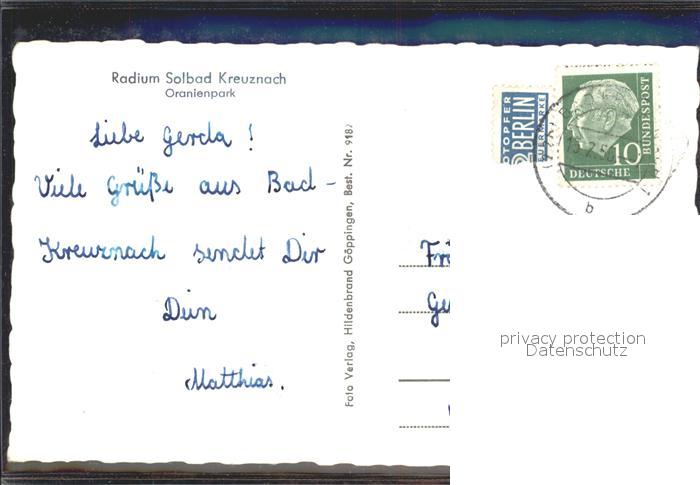 Radium Solbad Kreuznach
Oranienpark
Liebe Gerda !
Viele Grüße aus Bad-
Kreuznach sendet Dir
Dein
Matthias.
Foto Verlag, Hildenbrand Göppingen, Best. Nr. 918
NOTOPFER
2 BERLIN
STEUERMARKE
10
DEUTSCHE
BUNDESPOST
b
Frl
Ge
privacy protection
Datenschutz